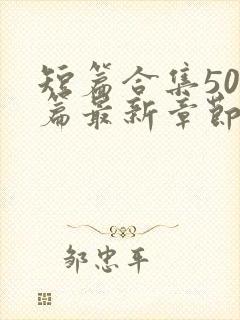 短篇合集50
篇最新章节
邹忠平